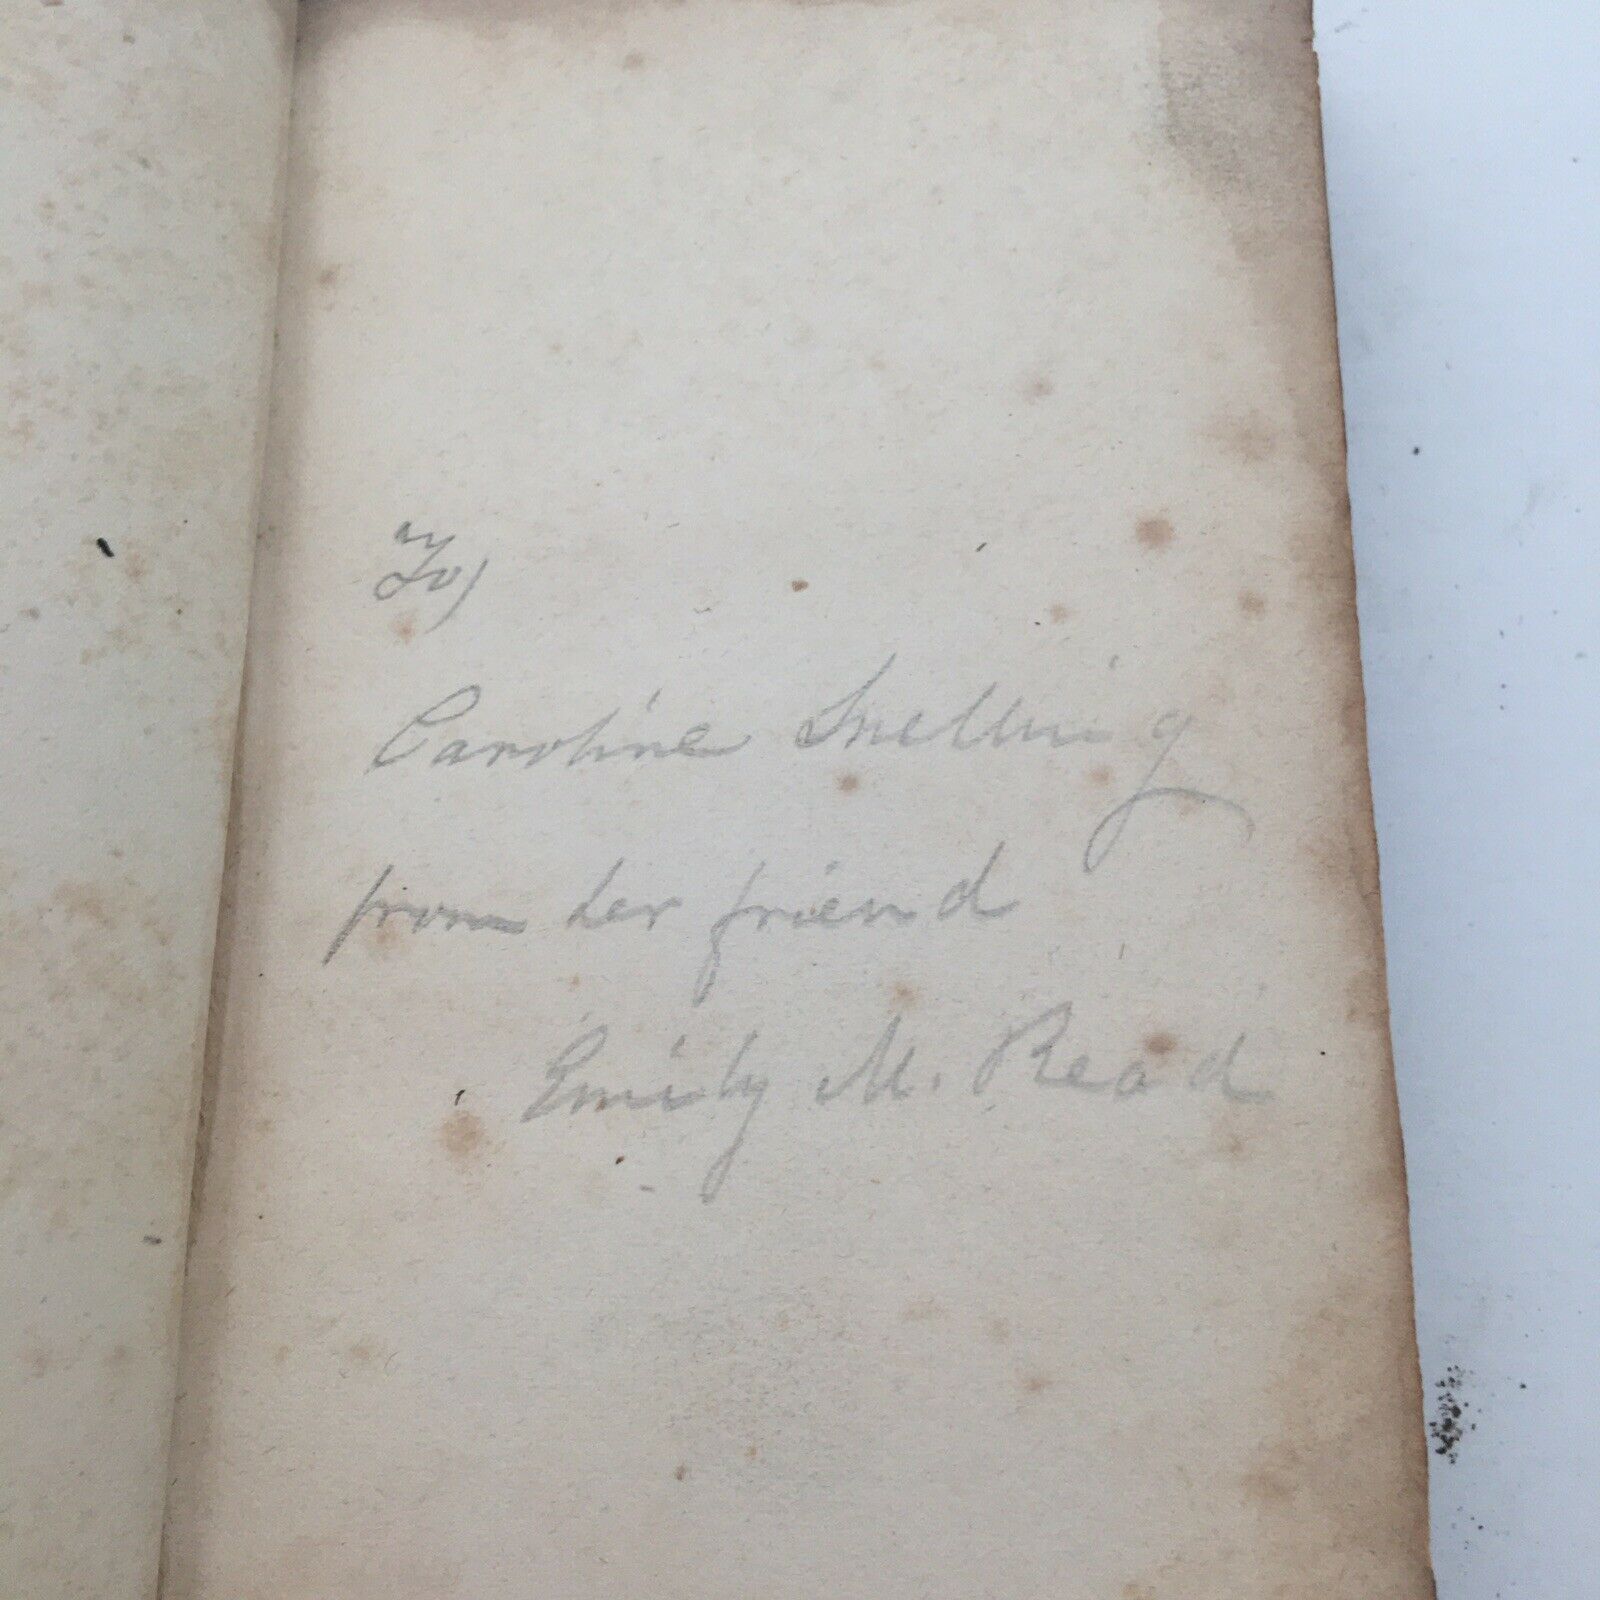 To,
Caroline Snelling
from her friend
Emily M. Read